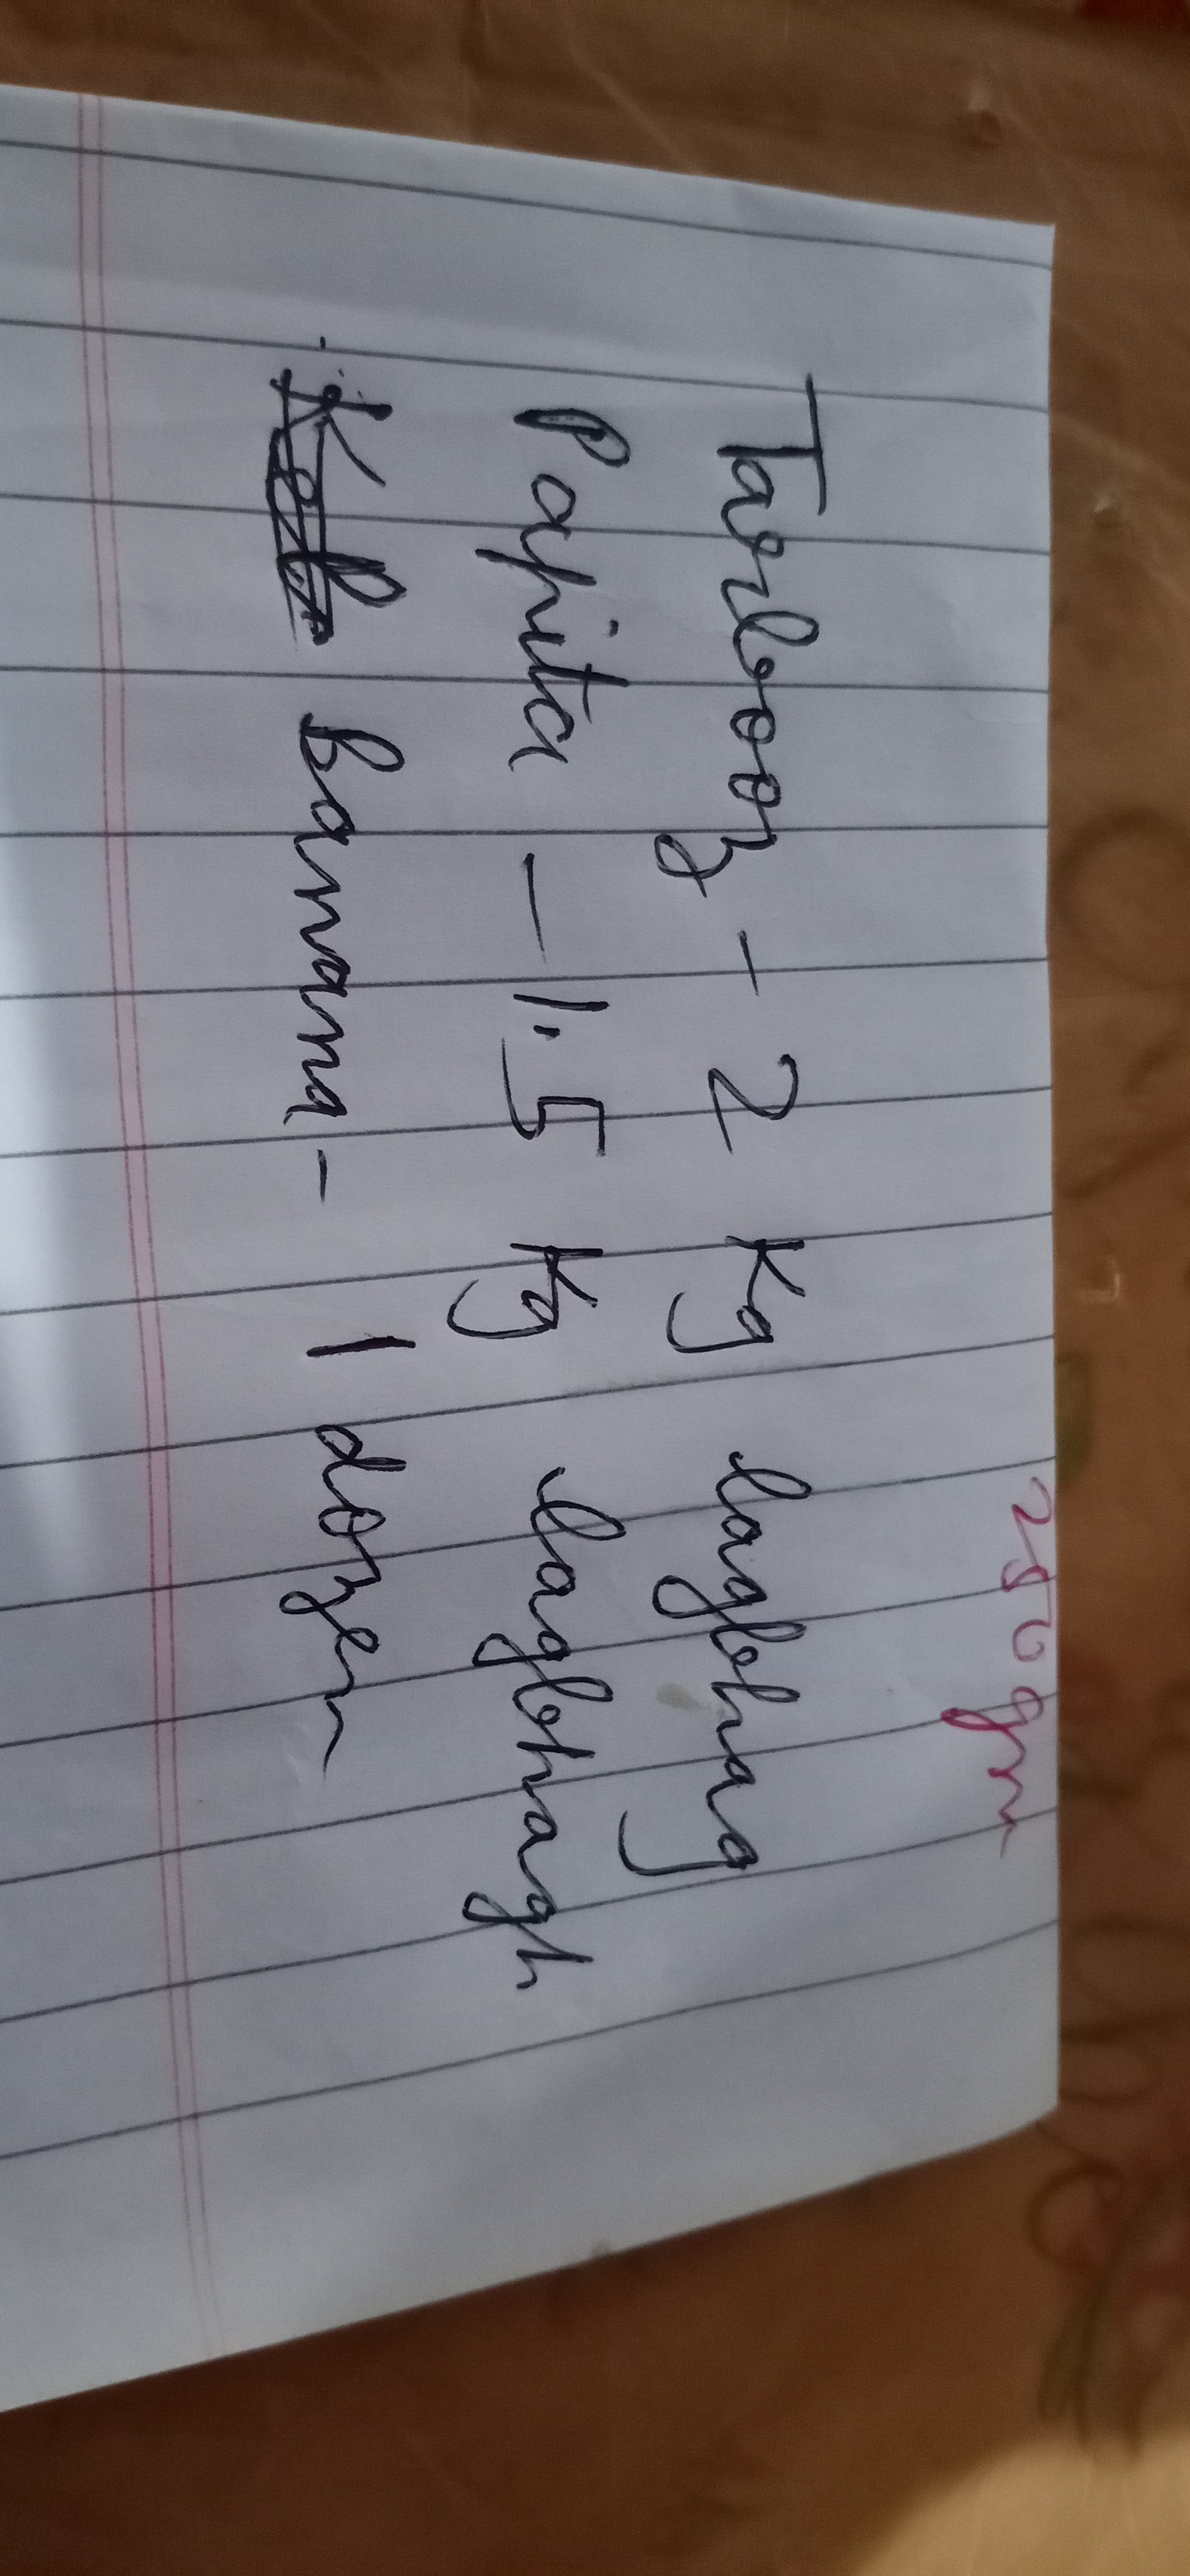 250 gm
Tarbooz - 2 Kg lagbhag
Papita - 1.5 Kg lagbhagh
Banana - 1 dozen